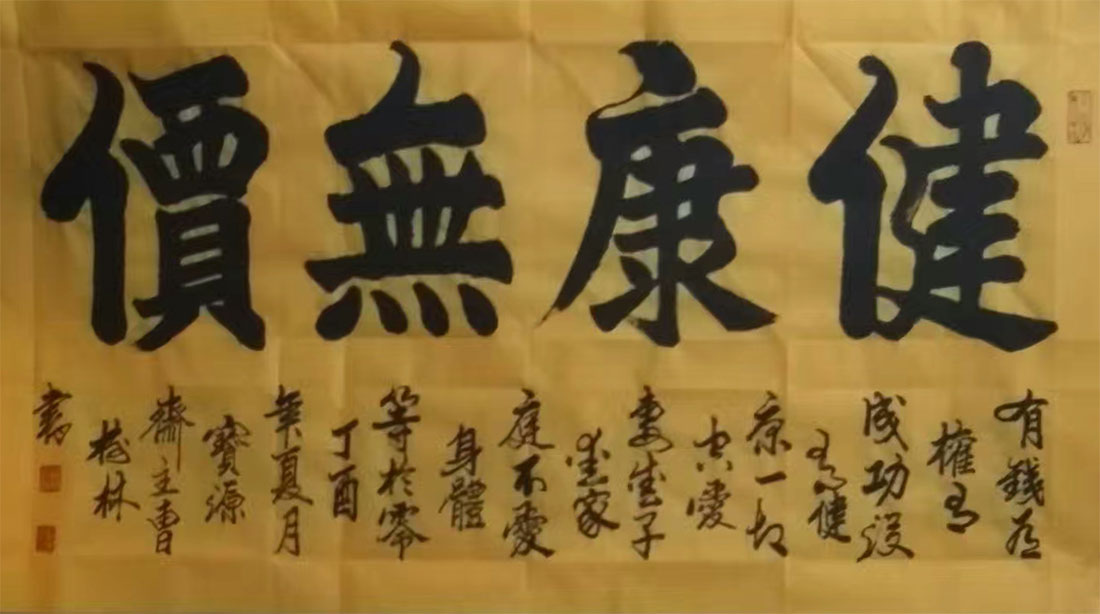 健康無價
有錢有
權有
成功沒
有健
康一切
空愛
妻愛子
愛家
庭不愛
身體
等於零
丁酉
年夏月
寶源
齋主曹
樹林
書